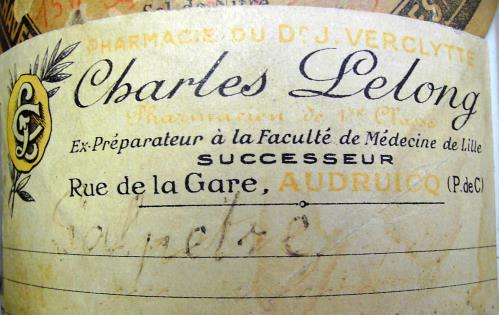 Sel de Nitre
PHARMACIE DU Dr J. VERCLYTTE
Charles Lelong
Pharmacien de 1re Classe
Ex-Préparateur à la Faculté de Médecine de Lille
SUCCESSEUR
Rue de la Gare, AUDRUICQ (P. de C)
Salpetre